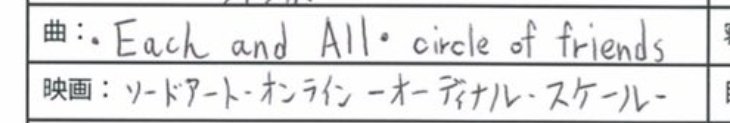 曲：・Each and All・circle of friends
映画：ソードアート・オンライン－オーディナル・スケール－